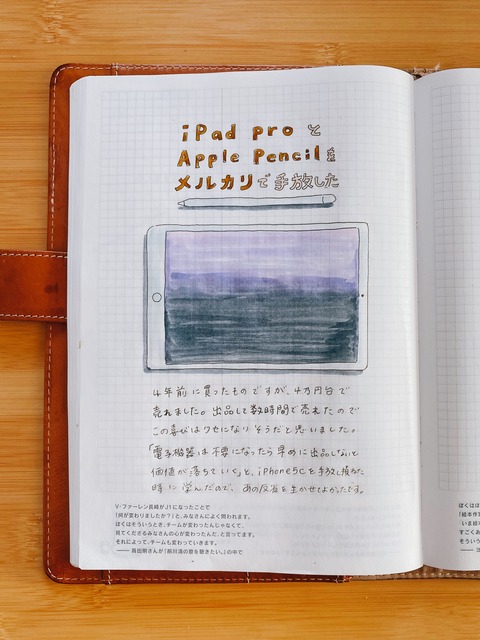 iPad pro と
Apple Pencil を
メルカリで手放した
4年前に買ったものですが、4万円台で
売れました。出品して数時間で売れたので
この喜びはクセになりそうだと思いました。
「電子機器は不要になったら早めに出品しないと
価値が落ちていく」と、iPhone5cを手放し損ねた
時に学んだので、あの反省を生かせてよかったです。
V・ファーレン長崎がJ1になったことで
「何が変わりましたか?」と、みなさんによく問われます。
ぼくはそういうとき、チームが変わったんじゃなくて、
見てくださるみなさんの心が変わったんだ、と言ってます。
それによって、チームも変わっていきます。
—— 髙田明さんが「前川清の歌を聴きたい。」の中で
ぼくは
「絵本作
いま絵
すごくあ
そういう